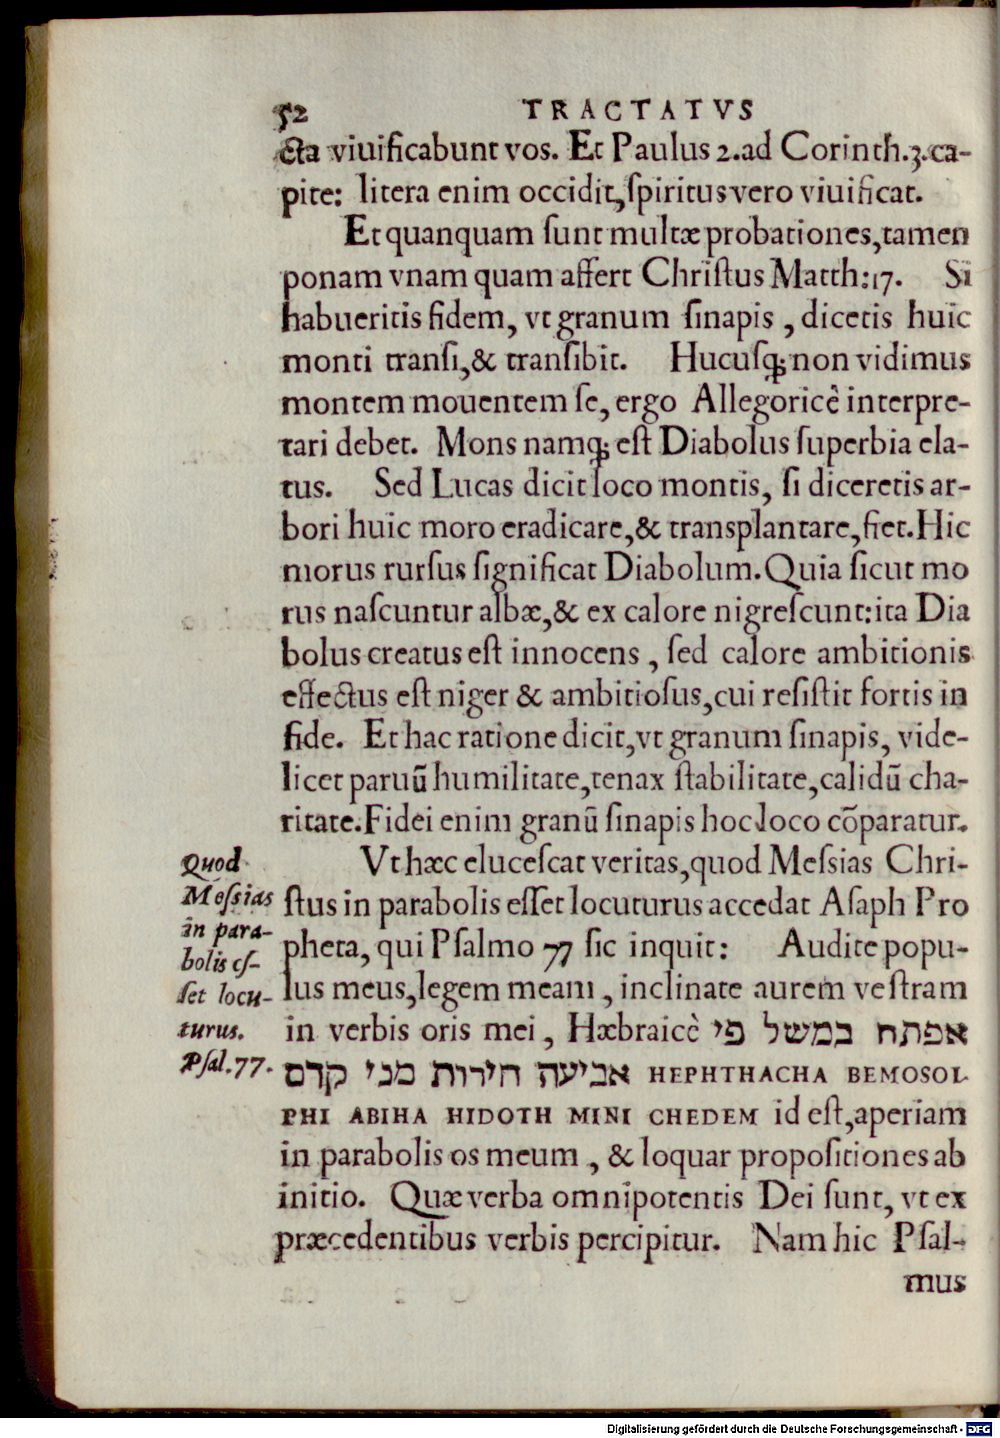 52 TRACTATVS
cta viuificabunt vos. Et Paulus 2. ad Corinth. 3. ca-
pite: litera enim occidit, ſpiritus vero viuificat.
Et quanquam ſunt multæ probationes, tamen
ponam vnam quam affert Chriſtus Matth: 17. Si
habueritis fidem, vt granum ſinapis, dicetis huic
monti tranſi, & tranſibit. Hucuſq; non vidimus
montem mouentem ſe, ergo Allegoricè interpre-
tari debet. Mons namq; eſt Diabolus ſuperbia ela-
tus. Sed Lucas dicit loco montis, ſi diceretis ar-
bori huic moro eradicare, & transplantare, fiet. Hic
morus rurſus ſignificat Diabolum. Quia ſicut mo
rus naſcuntur albæ, & ex calore nigreſcunt: ita Dia
bolus creatus eſt innocens, ſed calore ambitionis
effectus eſt niger & ambitioſus, cui reſiſtit fortis in
fide. Et hac ratione dicit, vt granum ſinapis, vide-
licet paruũ humilitate, tenax ſtabilitate, calidũ cha-
ritate. Fidei enim granũ ſinapis hoc loco cõparatur.
Vt hæc eluceſcat veritas, quod Meſsias Chri-
ſtus in parabolis eſſet locuturus accedat Aſaph Pro
pheta, qui Pſalmo 77 ſic inquit: Audite popu-
lus meus, legem meam, inclinate aurem veſtram
in verbis oris mei, Hæbraicè אפתח במשל פי
אביעה חירות מני קדם HEPHTHACHA BEMOSOL
PHI ABIHA HIDOTH MINI CHEDEM id eſt, aperiam
in parabolis os meum, & loquar propoſitiones ab
initio. Quæ verba omnipotentis Dei ſunt, vt ex
præcedentibus verbis percipitur. Nam hic Pſal-
mus
Quod
Meſsias
in para-
bolis eſ-
ſet locu-
turus.
Pſal. 77.
Digitalisierung gefördert durch die Deutsche Forschungsgemeinschaft - DFG